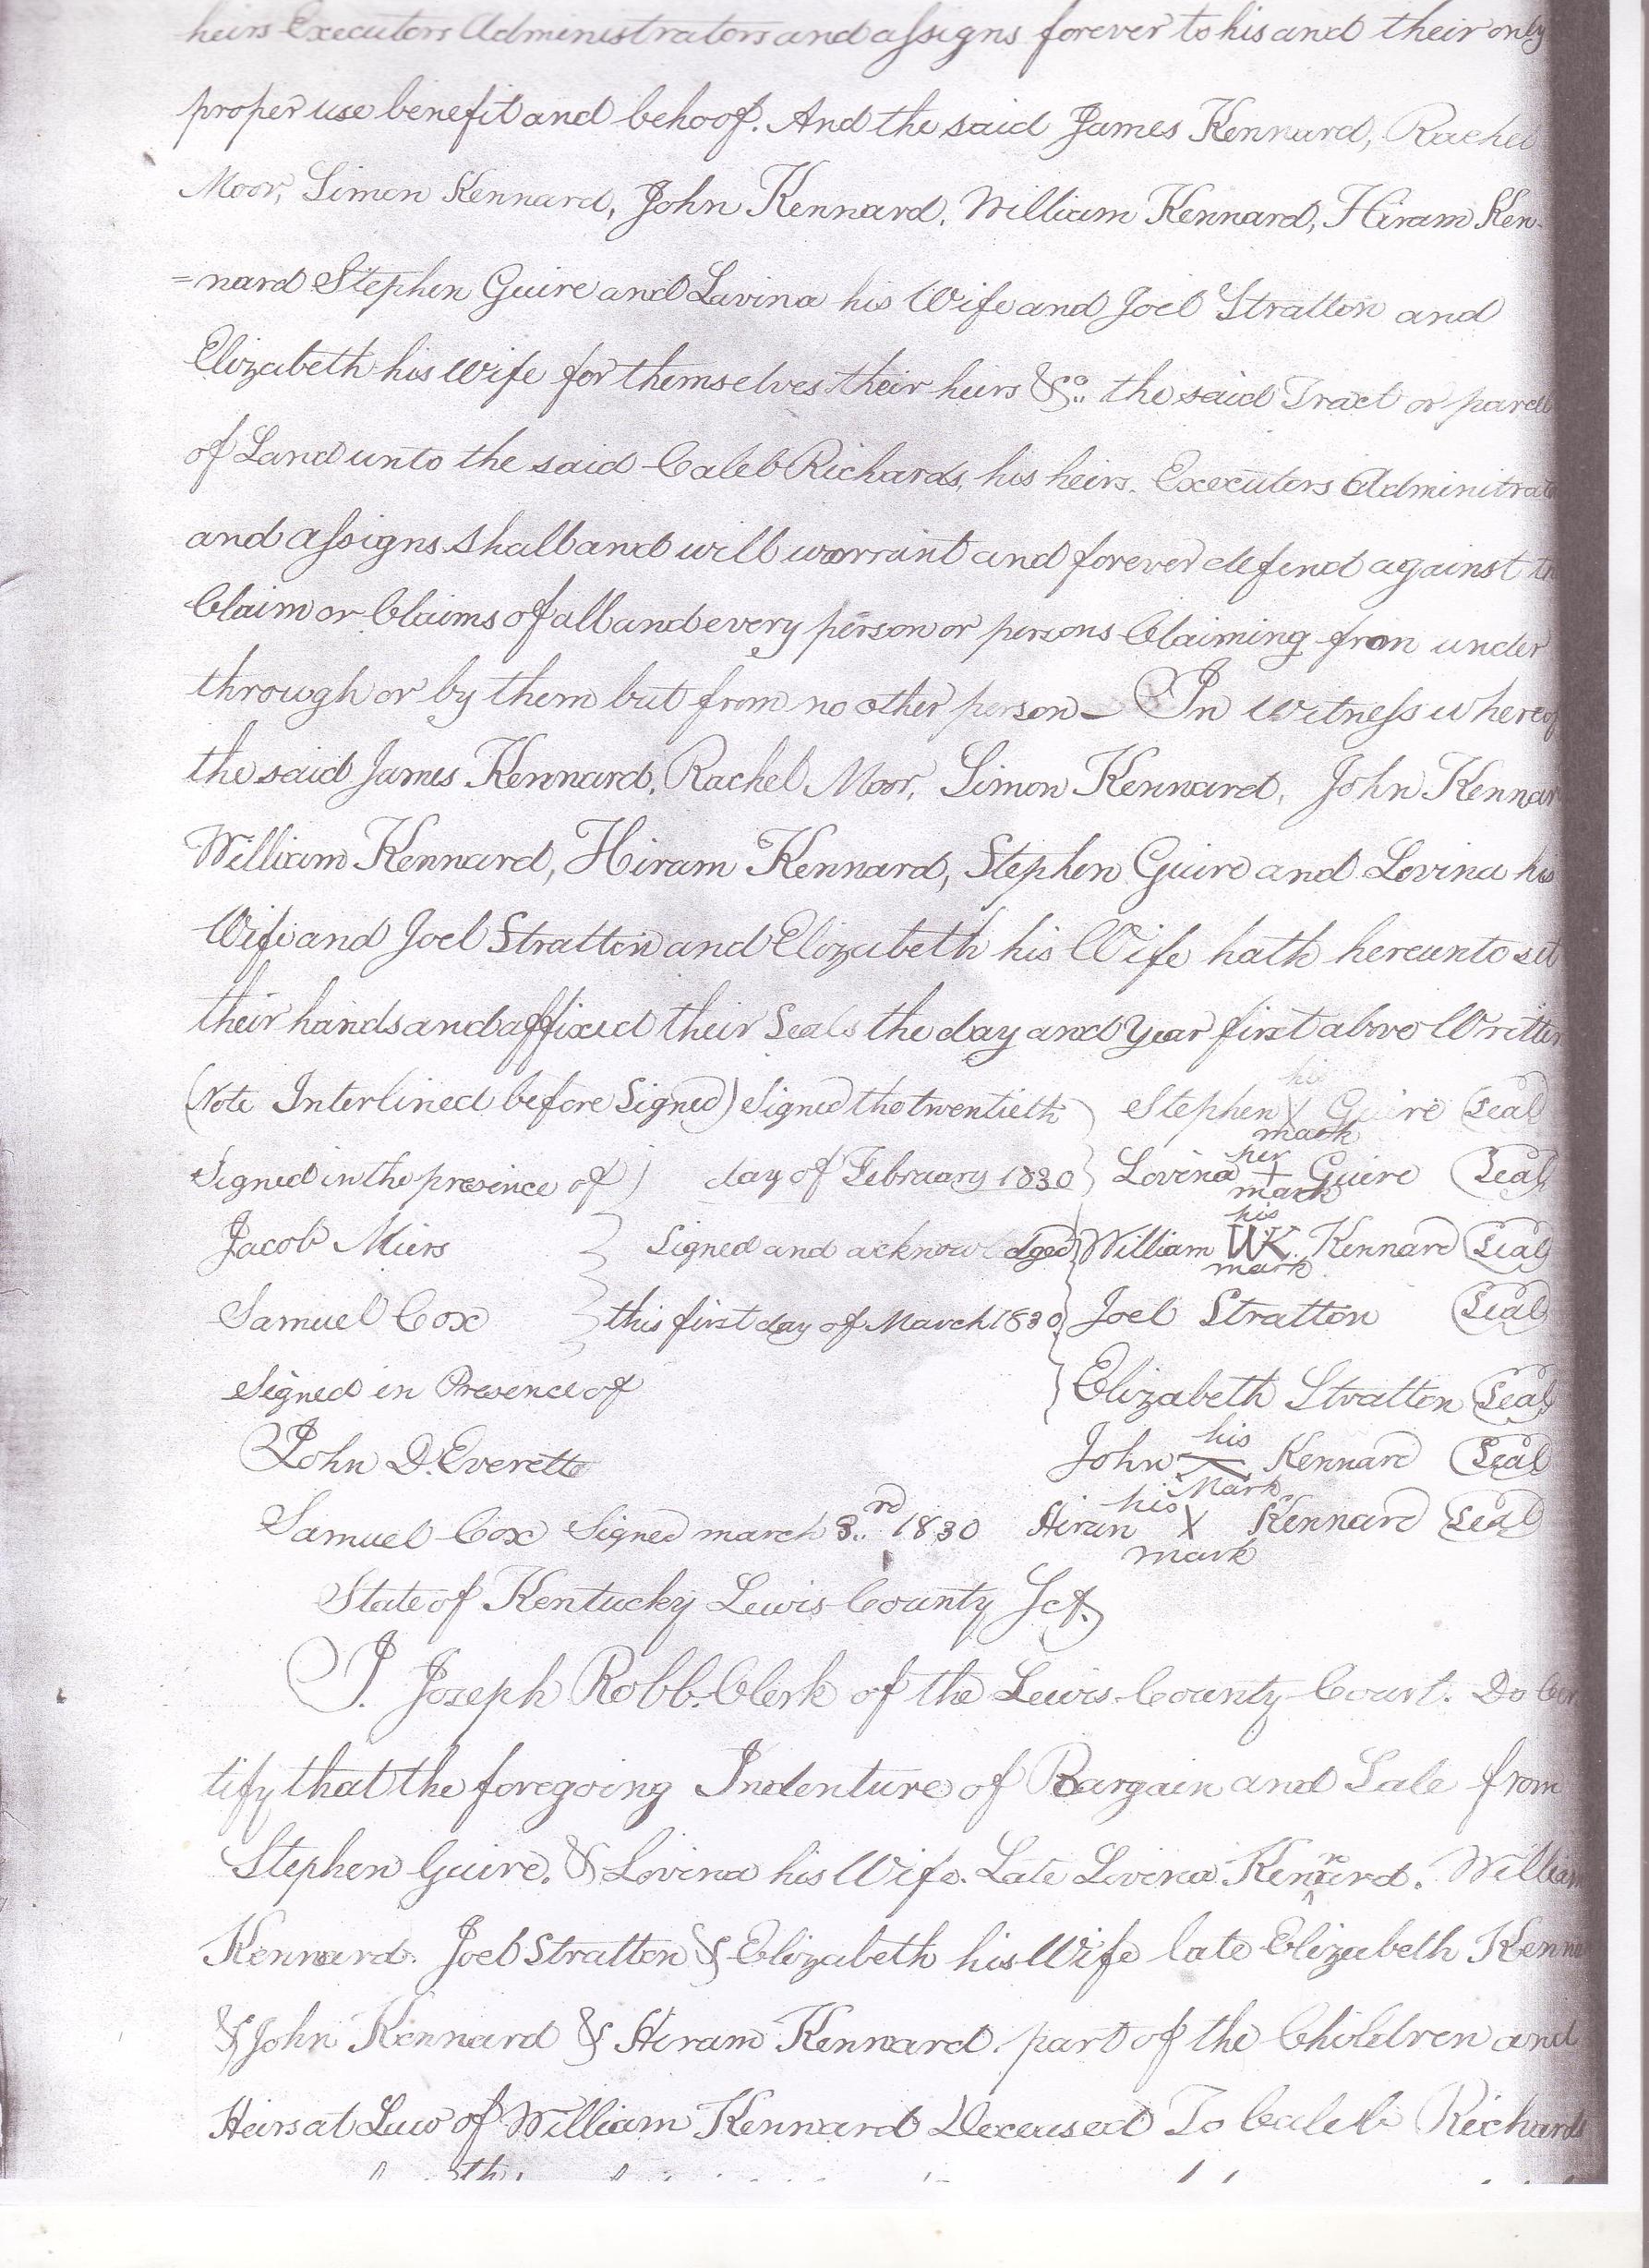 heirs Executors Administrators and assigns forever to his and their only
proper use benefit and behoof. And the said James Kennard, Rachel
Moor, Simon Kennard, John Kennard. William Kennard, Hiram Ken-
=nard Stephen Guire and Lavina his Wife and Joel Stratton and
Elizabeth his Wife for themselves their heirs &c. the said Tract or parcel
of Land unto the said Caleb Richards, his heirs. Executors Adminitrato
and assigns shall and will warrant and forever defend against the
Claim or Claims of all and every person or persons Claiming from under
through or by them but from no other person – In witness whereof
the said James Kennard, Rachel Moor, Simon Kennard, John Kennar
William Kennard, Hiram Kennard, Stephen Guire and Lovina his
Wife and Joel Stratton and Elizabeth his Wife hath hereunto set
their hands and affixed their Seals the day and Year first above Written
(Note Interlined before Signed) Signed the twentieth } Stephen his X mark Guire Seal
Signed in the presence of ) day of February 1830 } Lovina her + mark Guire Seal
Jacob Miers } Signed and acknowledged } William his WK. mark Kennard Seal
Samuel Cox } this first day of March 1830 } Joel Stratton Seal
Signed in Presence of } Elizabeth Stratton Seal
John D. Everette John his X Mark Kennard Seal
Samuel Cox Signed march 3rd 1830 Hiran his X mark Kennard Seal
State of Kentucky Lewis County Sct.
I. Joseph Robb. Clerk of the Lewis County Court. Do Cer
tify that the foregoing Indenture of Bargain and Sale from
Stephen Guire. & Lovina his Wife. Late Lovina Kennard. William
Kennard. Joel Stratton & Elizabeth his Wife late Elizabeth Kenna
& John Kennard & Hiram Kennard. part of the Children and
Heirs at Law of William Kennard Deceased To Caleb Richards